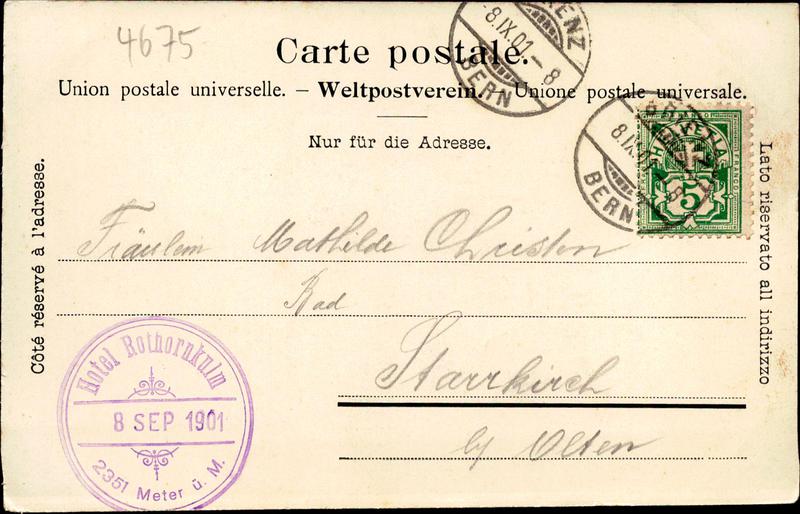 4675
Carte postale.
Union postale universelle. – Weltpostverein. – Unione postale universale.
Nur für die Adresse.
Côté réservé à l'adresse.
Lato riservato all indirizzo
BRIENZ
8.IX.01.–8
BERN
8.IX.01.–8
BERN
HELVETIA
FRANCO
5
Fräulein Mathilde Christen
Bad
Starrkirch
by Olten
Hotel Rothornkulm
8 SEP 1901
2351 Meter ü. M.